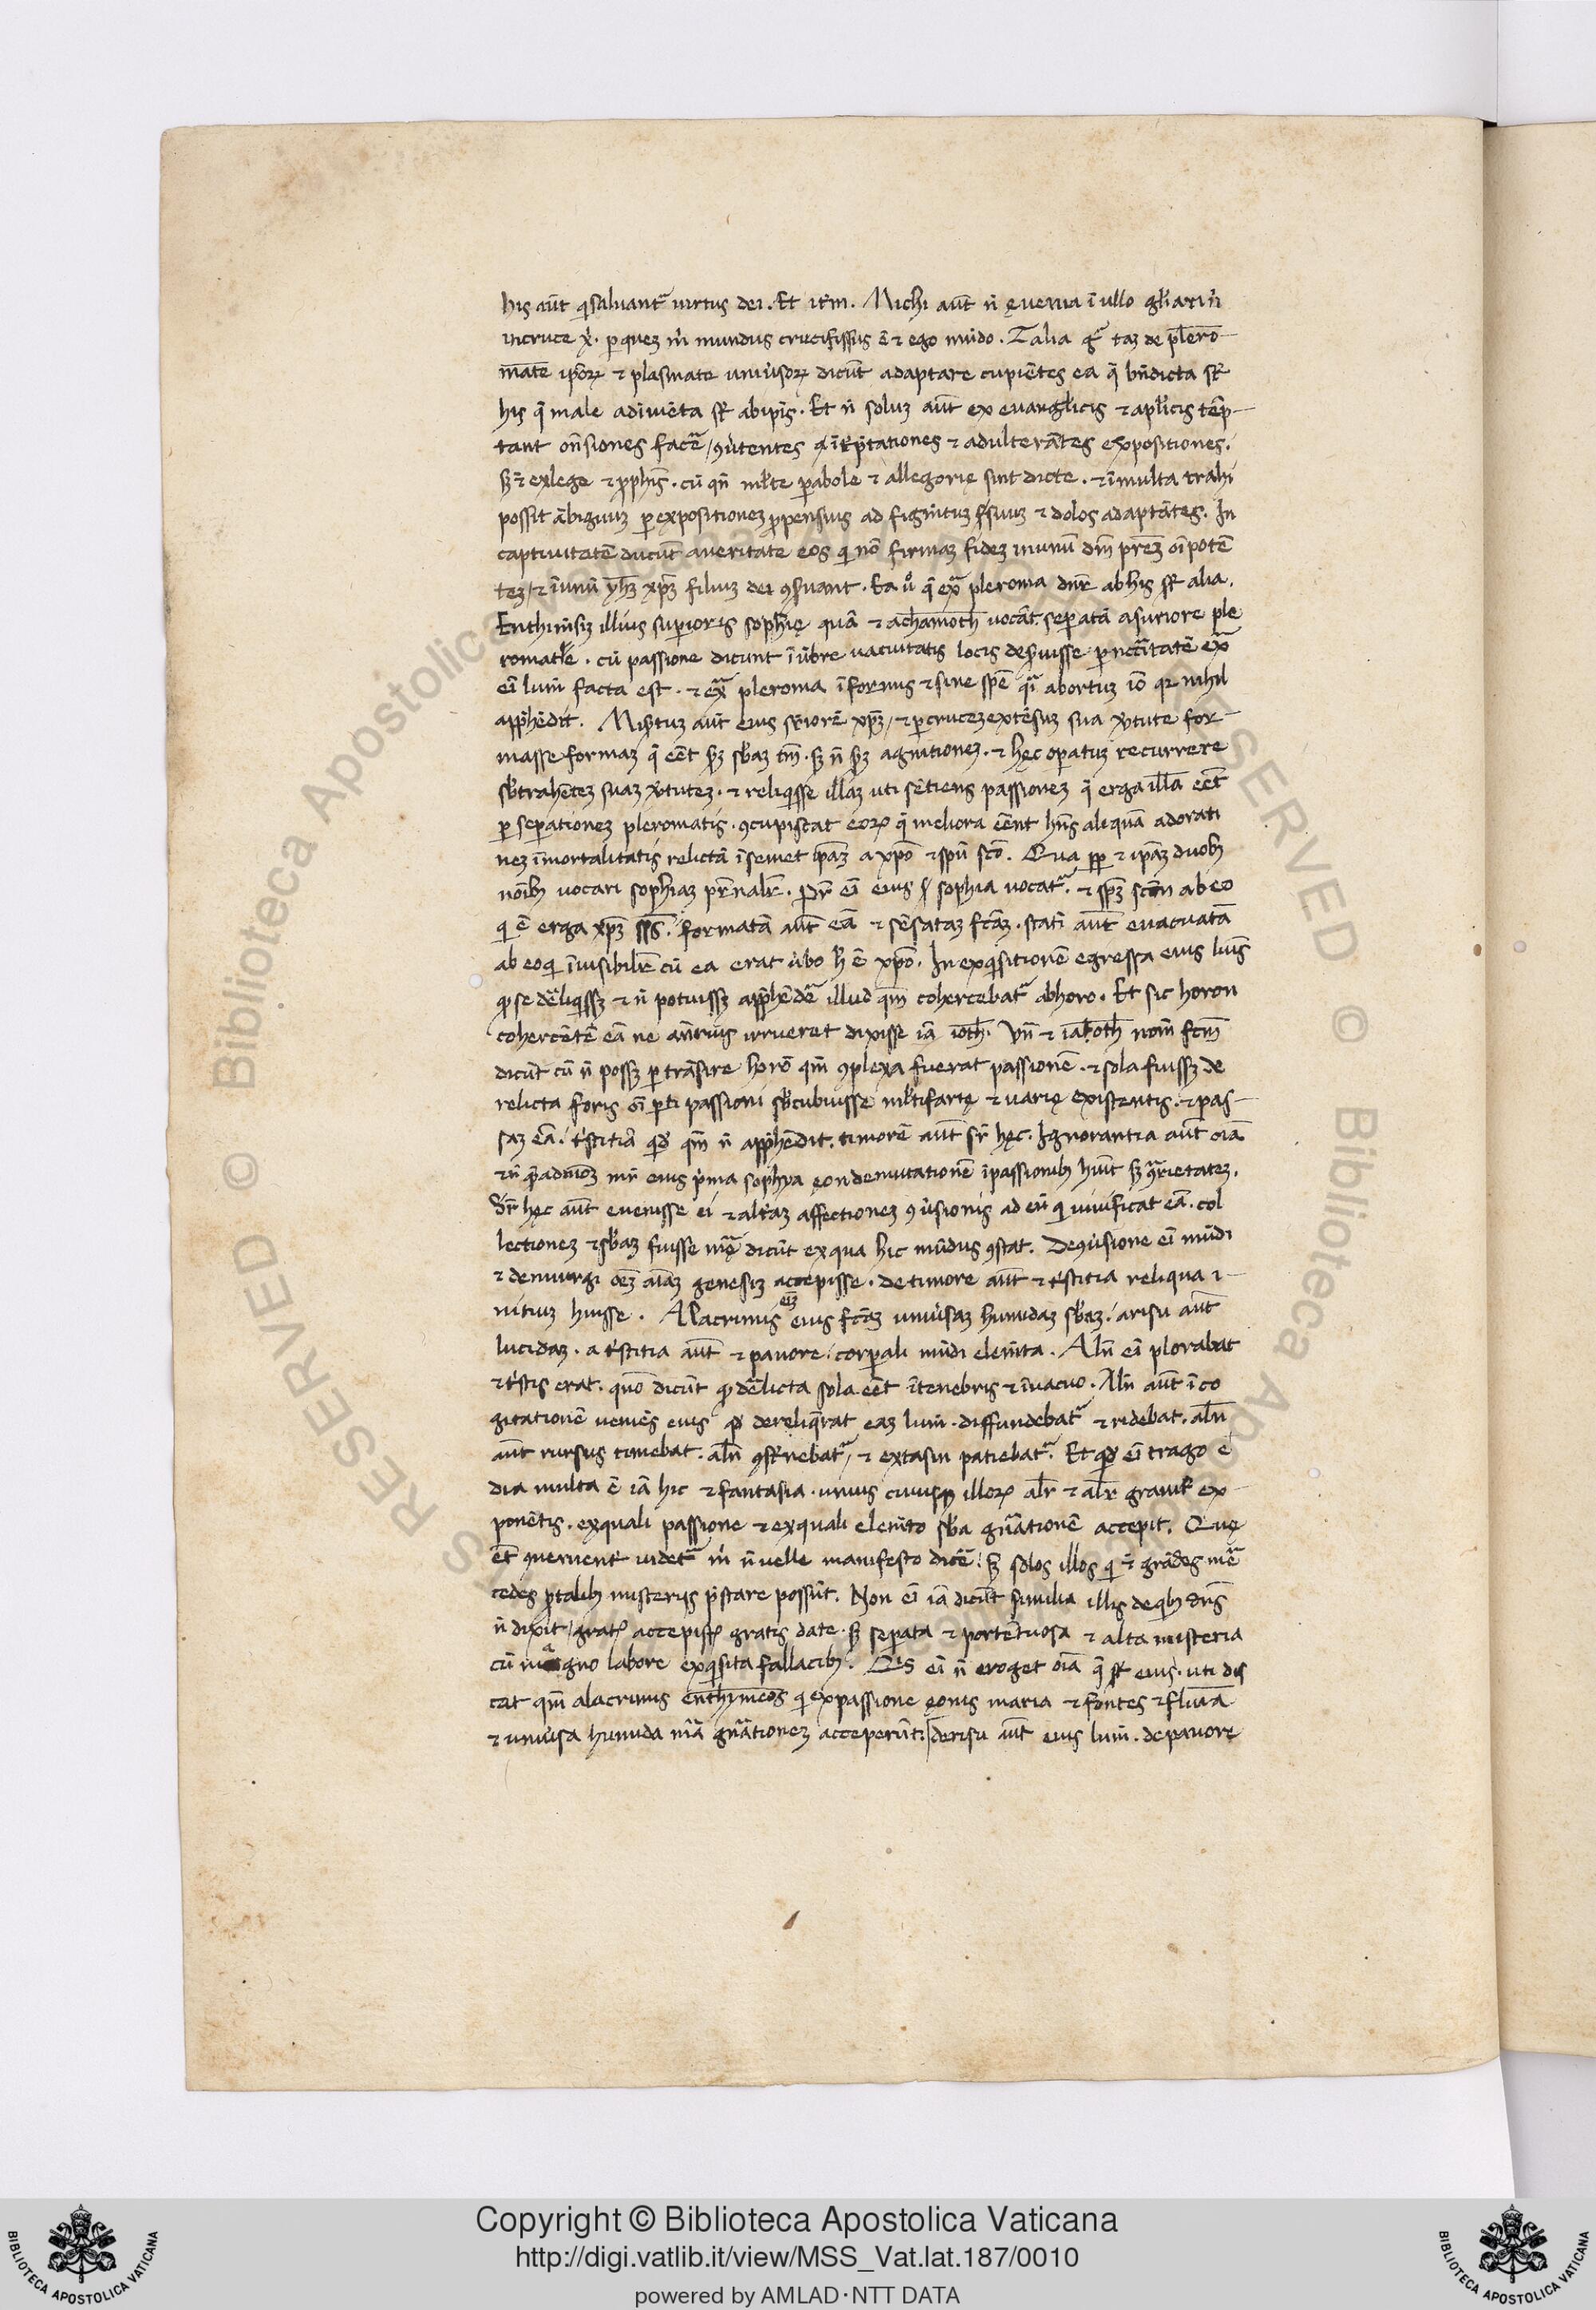 his aūt qͥ saluantᷣ uirtus dei. Et itm̄. Michi aūt n̄ ęuenia ī ullo gl̄iari ñ
in cruce x̄. per quez m̄ mundus crucifissus ē ⁊ ego mūdo. Talia gͥ taz de plero-
mate ip̄oꝝ ⁊ plasmate uniūsoꝝ dicūt adaptare cupiētes ea q̄ bn̄dicta st̄
his q̄ male adiuēta st̄ ab ip̄is. Et n̄ soluz aūt ex euangl̄icis ⁊ apl̄icis tēp-
tant on̄siones facē / ꝯūtentes īterp̄tationes ⁊ adulterātes expositiones.
sꝫ ⁊ ex lege ⁊ ꝓphīs. cū qn̄ ml̄te parabole ⁊ allegorię sint dicte. ⁊ ī multa trahi
possīt ābiguuz per expositionez ꝓpensius ad figmētuz suuz ⁊ dolos adaptātes. In
captiuitatē ducūt a ueritate eos qͥ nō firmaz fidez in unū dm̄ prēz oīpotē
tez / ⁊ ī unū yhz xp̄z filiuz dei ꝯseruant. Ea uͦ q̄ exͣ pleroma dnr̄ ab his st̄ alia.
Enthimesiz illius superioris sophię quā ⁊ achamoth uocāt separatā a superiore ple
romate. cū passione dicunt ī ūbre uacuitatis locis deseruisse per nc̄citatē exͣ
eī lum̄ facta est. ⁊ exͣ pleroma īformis ⁊ sine spē qͣi abortuz iō qr nihil
apphēdit. Misertuz aūt eius superiorē xp̄z / ⁊ per crucez extēsuz sua v̄tute for-
masse formaz q̄ eēt sz sb̄az tm̄. sꝫ n̄ sz agnitionez. ⁊ hęc operatuz recurrere
sb̄trahētez suaz v̄tutez. ⁊ reliqͥsse illāz uti sētiens passionez q̄ erga illā eēt
per separationez pleromatis. ꝯcupiscat eoꝝ q̄ meliora eēnt hn̄s aliquā adorati
nez īmortalitatis relictā ī semet ip̄az a xp̄o ⁊ spū scō. Qua pp ⁊ ip̄az duobꝫ
noībꝫ uocari sophiaz pr̄nalr̄. Pr̄ eī eius sophia uocatᷣ. ⁊ spz scm̄ ab eo
qͥ ē erga xp̄z sps̄. formatā aūt eā ⁊ sēsataz fcāz. statī aūt euacuatā
ab eo qͥ īuisibilr̄ cū ea erat ūbo h̄ ē xp̄o. In exqͥsitionē egressa eius lum̄
qͦ se dēliqͥssꝫ ⁊ n̄ potuissꝫ apphēdē illud qm̄ cohercebatᷣ ab horo. Et sic horon
cohercētē eā ne anterius irrueret dixisse iā ioth. Vn̄ ⁊ iaoth nom̄ fcm̄
dicūt cū n̄ possꝫ per trāsire horō qm̄ ꝯplexa fuerat passionē. ⁊ sola fuissꝫ de
relicta foris oī parti passioni sb̄cubuisse ml̄tifarię ⁊ uarię existentis. ⁊ pas-
saz eā. tͥstitiā qͥdē qm̄ n̄ apphēdit. timorē aūt sr̄ hęc. Ignorantia aūt oīa
⁊ n̄ q̄admoz mr̄ eius pͥma sophya ęon demutationē ī passionibꝫ hūit sꝫ ꝯͣrietatez.
Sr̄ hęc aūt euenisse ei ⁊ alteraz affectionez ꝯūsionis ad eū qͥ uiuificat eā. col
lectionez ⁊ sb̄az fuisse mͣę dicūt ex qua hic mūdus ꝯstat. De ꝯūsione eī mūdi
⁊ demiurgi oēz aīaz genesiz accepisse. de timore aūt ⁊ tͥstitia reliqua i-
nitiuz huisse. A lacrimis eīz eius fcāz uniūsaz humidaz sb̄az. a risu aūt
lucidaz. a tͥstitia aūt ⁊ pauore. corporali mūdi elemēta. Aln̄ eī plorabat
⁊ tͥstis erat. quō dicūt qͦ dēlicta sola eēt ī tenebris ⁊ ī uacuo. Aln̄ aūt ī co
gitationē ueniēs eius qͦ dereliqͥrat eaz lum̄. diffundebatᷣ ⁊ ridebat. aln̄
aūt rursus timebat. aln̄ ꝯsternebatᷣ / ⁊ extasin patiebatᷣ. Et qͥd eī tragoe
dia multa ē iā hic ⁊ fantasia. unius cuiusqꝫ illoꝝ alr̄ ⁊ alr̄ grauitr̄ ex-
ponētis. ex quali passione ⁊ ex quali elemēto sb̄a gn̄ationē accepit. Quę
ēt ꝯuenienter uidetᷣ m̄ n̄ uelle manifesto dicē. sꝫ solos illos qͥ ⁊ grādes mer̄
cedes ꝓ talibꝫ misteriis pͥstare possūt. Non eī iā dicūt similia illis de qͥbꝫ dn̄s
n̄ dixit / gratis accepistis gratis date. sꝫ separata ⁊ portētuosa ⁊ alta misteria
cū magno labore exqͥsita fallacibꝫ. Qͥs eī n̄ eroget oīa q̄ st̄ eius. uti dis
cat qm̄ a lacrimis enthymeos qͥ ex passione ęonis maria ⁊ fontes ⁊ flumīa
⁊ uniūsa humida mͣa gn̄ationez acceperūt. de risu aūt eius lum̄. de pauore